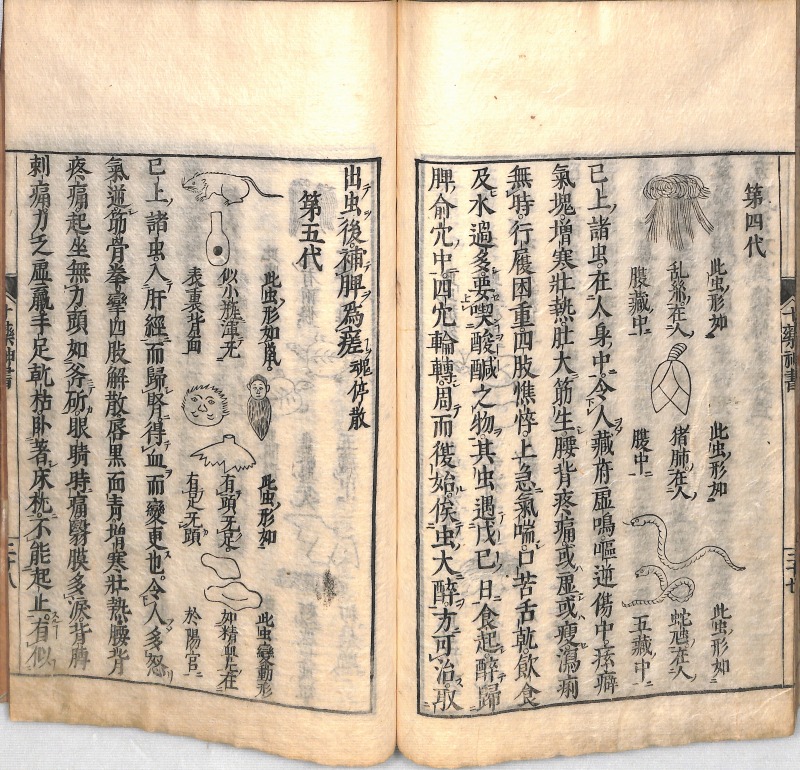 第四代
此虫形如
乱絲在人
腹藏中
此虫形如
猪肺在人
腹中
此虫形如
蛇虺在人
五藏中
已上諸虫在人身中令人藏府虛鳴嘔逆傷中痃癖
氣塊增寒壯熱肚大筋生腰背疼痛或虛或瘦瀉痢
無時行履困重四肢憔悴上急氣喘口苦舌乾飲食
及水過多要喫酸鹹之物其虫遇戊已日食起醉歸
脾俞穴中四穴輪轉周而復始俟虫大醉方可治取
出虫後補脾爲瘥 魂停散
第五代
此虫形如鼠
似小瓶渾无
表裏背面
此虫形如
有頭无足
有足无頭
此虫變動形
如精血在
於陽官
已上諸虫入肝經而歸腎得血而變更也令人多怒
氣逆筋骨拳攣四肢解散唇黑面青增寒壯熱腰背
疼痛起坐無力頭如斧斫眼睛時痛翳膜多淚背膊
刺痛力乏虛羸手足乾枯卧著床枕不能起止有似
十藥神書
二十七
十藥神書
二十八